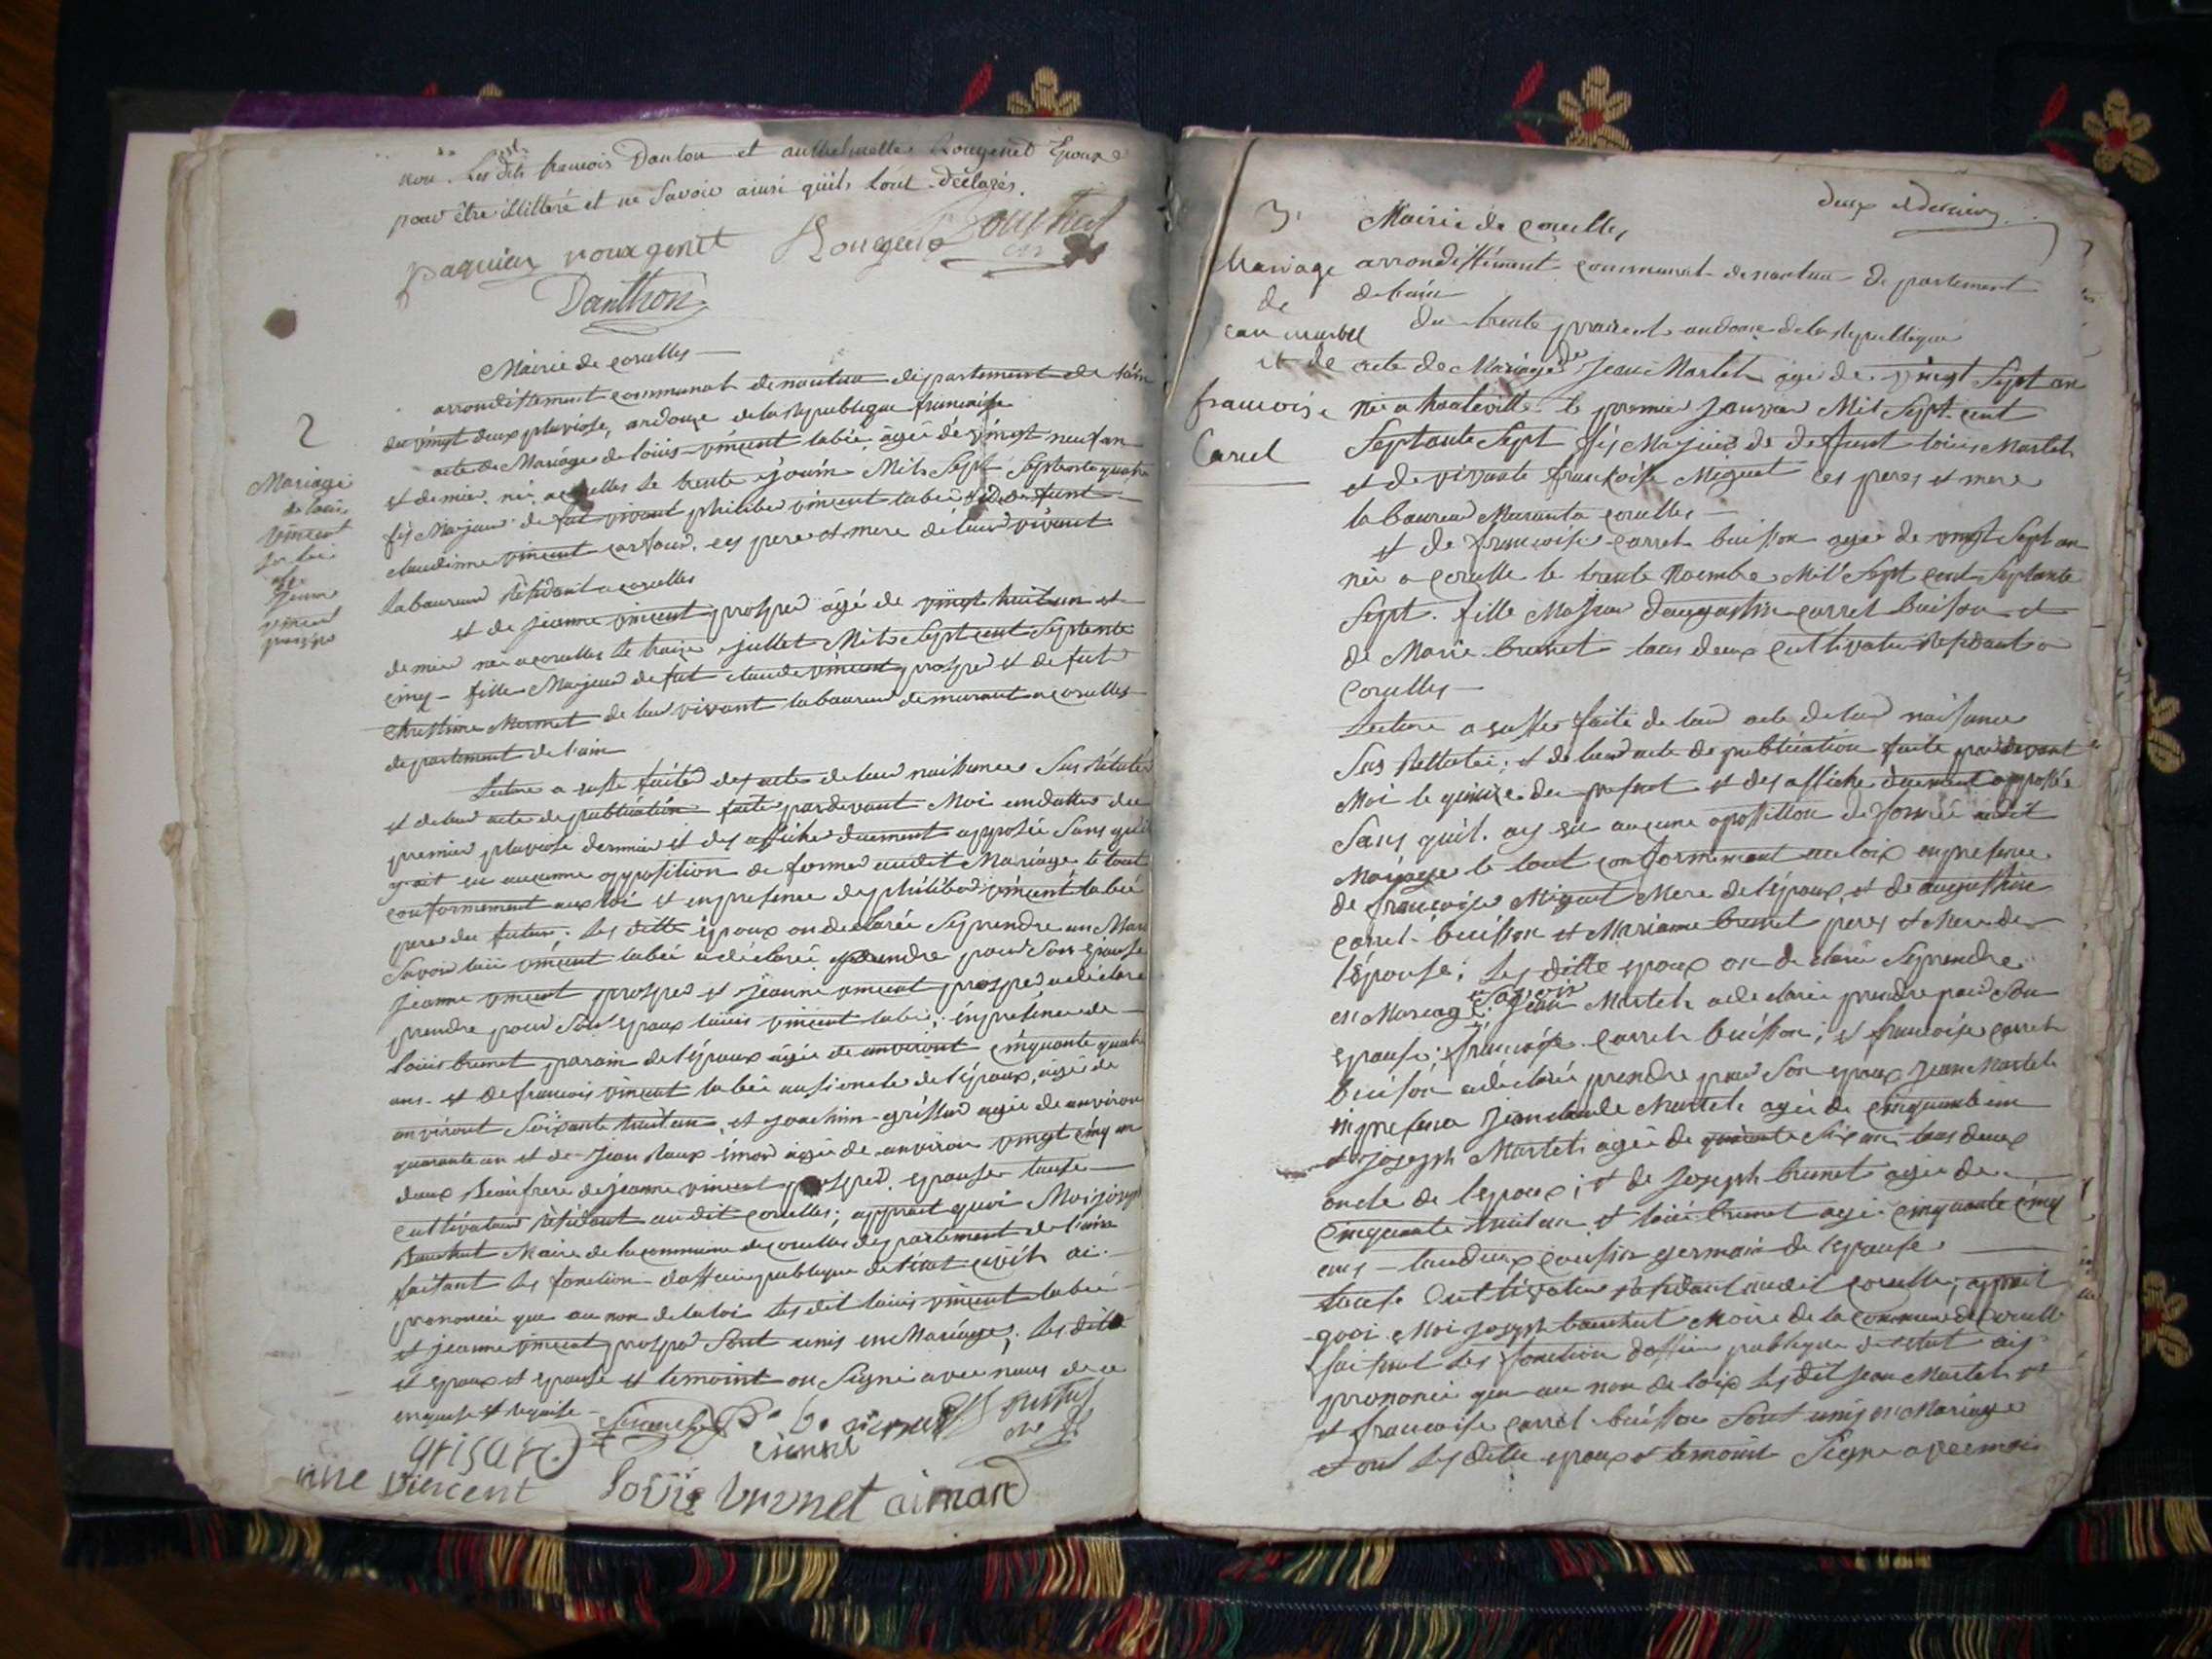 non. Les dits françois Danton et anthelmette Rougenet Epoux
pour être illitteré et ne Savoir ainsi qu'ils l'ont déclarés.
paquier rouxgenet Rougenet
Danthon
Mairie de corcelles
arrondissement communal de nantua departement de l'ain
du vingt deux pluviose, an douze de la republique francaise
2
Mariage
de louis
vincent
labie
et
jeanne
vincent
prospe
acte de Mariage de louis vincent labie âgée de vingt neuf an
et demie. née a corcelles le trente jouin Mil Sept Septente quatre
fis Majeur de philibe vincent labie et de defunt
claudinne vincent carfour. ces pere et mere de leur vivant
labaureur résidant a corcelles
et de jeanne vincent prosper âgé de vingt huit an et
demie née a corcelles le traize juillet Mil Sept cent Septente
cinq - fille Majeur de fut claude vincent prosper et de fut
christine Mermet de leur vivant labaureur demeurant a corcelles
departement de l'ain
Lecture a estte faite des actes de leur naissance Sus rélaté
et de leur acte de publication faite pardevant Moi en datte du
premier pluviose dernier et des affiche duement apposée Sans qu'il
y ait eu aucunne opposition de former audit Mariage le tout
conformement aux loi et en presence de philiber vincent labié
pere du futur; les ditte époux on declarée Se prendre en Mari
Savoir louis vincent labie a déclarée prendre pour Son épouse
jeanne vincent prosper et jeanne vincent prosper a déclaré
prendre pour Son epoux louis vincent labie; en presence de
louis brunet parain de l'époux âgée de anviront cinquante quatre
ans - et de francois vincent labie aussi oncle de l'époux, âgée de
anviront Soixante huit an, et joachim grissard âgée de anviron
quarante an et de jean âgée de anviron vingt cinq an
deux Beaufrere de jeanne vincent prosper, epouse touse
cultivateur résidant audit corcelles; apprait quoi Moi joseph
Bouchut Maire de la commune de corcelles departement de l'ain
faisant les fonction d'officier publique de l'état civil ai
prononcée que au nom de la loi les dit louis vincent labié
et jeanne vincent prosper Sont unis en Mariage; les ditte
et epoux et epouse et temoint on Signé avec nous de ce
enquise et requise
grisard
Vincent Louis brunet aimard
deux et dernier
3. Mairie de corcelles
arrondissement communal de nantua departement
de l'ain
Mariage
de
Jean martel
et de
francoise
Carrel
du trente prairial an douze de la republique
acte de Mariage de Jean Martel âgé de vingt Sept an
née a hauteville le premier Janvier Mil Sept cent
Septante Sept fis Majeur de deffunt louis Martel
et de vivante francoise Miguet ces peres et mere
labaureur a corcelles
et de francoise carrel buisson âgée de vingt Sept an
née a corcelle le trente Novembre Mil Sept cent Septante
Sept. fille Majeur d'augustin carrel buison et
de Marie brunet tous deux cultivateur residant a
corcelles
Lecture a estte faite de leur acte de leur naissance
Sus rellatée; et de leur acte de publication faite par devant
Moi le quinze du present et des affiche duement apposée
Sans quil. ay eu aucunne opossition de formée audit
Mariage le tout conformement au loix en presence
de francoise Miguet Mere de l'époux, et de augustin
carrel-buisson et Marianne brunet peres et Mere de
l'épouse; les ditte epoux on declarée Se prendre
en Mariage; Savoir Jean Martel a declarée prendre pour Son
epouse; francoise carrel buisson; et francoise carrel
buison a declarée prendre pour Son epoux Jean Martel
en presence Jean claude Martel âgée de cinquante un
et joseph Martel âgée de quarante Six an, tous deux
oncle de l'epoux; et de Joseph brunet âgée de
cinquante huit an et louis brunet âgée cinquante cinq
ans - tous deux coussin germain de l'epouse
touse cultivateur résidant audit corcelle; apprait
quoi Moi joseph bouchut Maire de la commune de corcelle
faisant les fonction d'officier publique de l'état aij
prononcée que au nom de loix les dit Jean Martel
et francoise carrel buisson Sont unis en Mariage
et ont les ditte epoux et temoint Signe avec moi